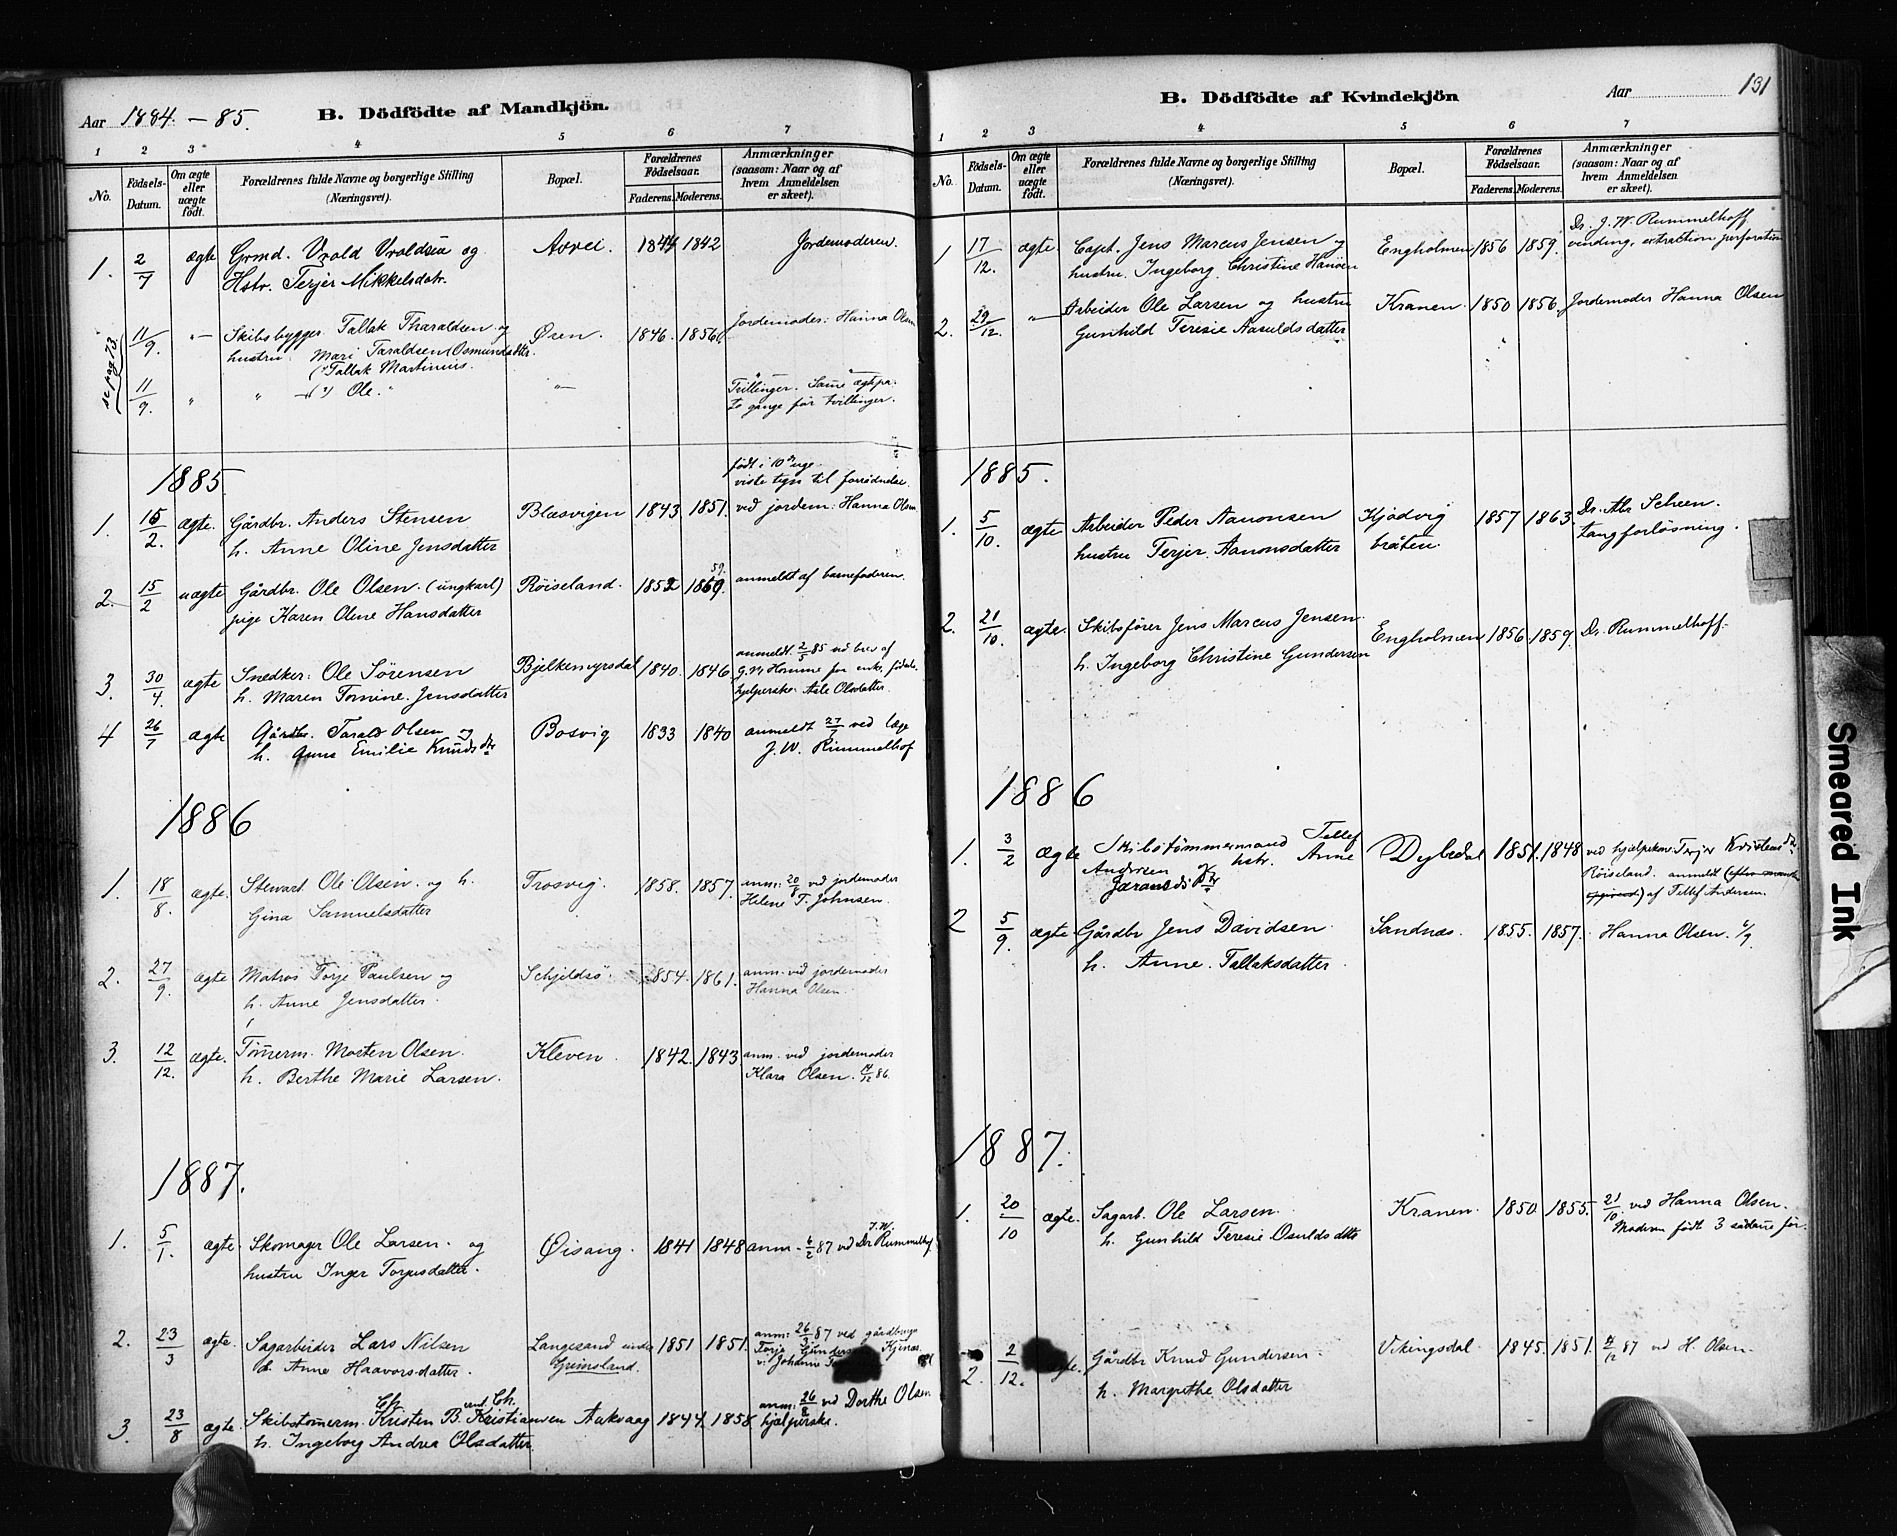 Aar 1884 – 85.
B. Dödfödte af Mandkjön.
1 2 3 4 5 6 7
No.
Födsels-
Datum.
Om ægte
eller
uægte
födt.
Forældrenes fulde Navne og borgerlige Stilling
(Næringsvei).
Bopæl.
Forældrenes
Födselsaar.
Faderens. Moderens.
Anmærkninger
(saasom: Naar og af
hvem Anmeldelsen
er skeet).
1. 2/7 ægte Grmd. Vrold Vroldsen og Aavel. 1844 1842 Jordemoderen.
Hstr. Terjer Mikkelsdatr.
se pag 73
11/9. "— Skibsbygger Tallak Tharaldsen og Øren. 1846. 1856. Jordemoder: Hanna Olsen
hustru Mari Taraldsen (Osmundsdatter.
Tallak Martinius.
11/9. " " Ole. " "— Trillinger. Same ægtepar
to gange før tvillinger.
1885
født i 10de uge
viste tegn til forrådnelse.
1. 15/2. ægte. Gårdbr. Anders Stensen Blæsvigen 1843 1851. ved jordem: Hanna Olsen
h. Anne Oline Jensdatter
2. 15/2 uægte Gårdbr. Ole Olsen. (ungkarl) Røiseland. 1852 1869. 59. anmeldt af barnefaderen.
pige Karen Oline Hansdatter
3. 30/4. ægte Snedker: Ole Sörensen Bjelkemyrsdal 1840. 1846. anmeldt 2/5 85 ved brev af
h. Maren Tomine Jensdatter
hjelperske: Asle Olsdatter.
4 26/7 ægte Gårdbr. Tarald Olsen og Bosvig 1833 1840 anmeldt 27/7 ved læge
h. Anne Emilie Knudsdtr J. W. Rummelhof
1886
1. 18/8. ægte. Stewart Ole Olsen. og h. Trosvig. 1858. 1857. anm: 20/8 ved jordemoder
Gina Samuelsdatter Helene T. Johnsen.
2. 27/9. ægte Matros Torje Paulsen og Schjeldsø. 1854. 1861. anm. ved jordemoder
h. Anne Jensdatter. Hanna Olsen.
3. 12/12. ægte. Tömerm. Morten Olsen. Kleven. 1842. 1843. anm. ved jordemoder
h. Berthe Marie Larsen. Klara Olsen. 86.
1887.
1. 5/1. ægte. Skomager Ole Larsen. og Øisang. 1841 1848 anm. 6/2 87 ved Dr J.W. Rummelhof.
hustru Inger Torjusdatter.
2. 23/3 ægte. Sagarbeider Lars Nilsen Langesand under 1851 1851. anm: 26/3 87 ved gårdbruger
h. Anne Haavorsdatter. Grimsland. Torje Gunders Kjinæs
v: Johanne
3. 23/8 ægte. Skibstömerm. Kristen B. Kristiansen Aakvaag 1844. 1858. anm: 26/8 ved Dorthe Olsen
h. Ingeborg Andrea Olsdatter. hjælperske.
B. Dödfödte af Kvindekjön
Aar
131
1 2 3 4 5 6 7
No.
Födsels-
Datum.
Om ægte
eller
uægte
födt.
Forældrenes fulde Navne og borgerlige Stilling
(Næringsvei).
Bopæl.
Forældrenes
Födselsaar.
Faderens. Moderens.
Anmærkninger
(saasom: Naar og af
hvem Anmeldelsen
er skeet).
Dr. J. W. Rummelhoff
1 17/12. ægte. Capt. Jens Marcus Jensen og Engholmen 1856 1859. vending, extraction, perforation
hustru. Ingeborg Christine Hansen
2. 29/12. "— Arbeider Ole Larsen og hustru Kranen. 1850 1856. Jordemoder Hanna Olsen
Gunhild Teresie Aasuldsdatter
1885.
1. 5/10. ægte Arbeider Peder Aanonsen Kjødvig 1857 1863. Dr. Abr Scheen.
hustru Terjer Aanonsdatter bråten. tangforløsning.
2. 21/10. ægte. Skibsfører Jens Marcus Jensen Engholmen 1856 1859. Dr. Rummelhoff.
h. Ingeborg Christine Gundersen
1886
1. 3/2 ægte Skibstömmermand Tellef Dybedal 1851. 1848 ved hjælpekone Terjer Kristensdtr.
Andersen hstr. Anne Røiseland. anmeldt
Jøransdtr af Tellef Andersen.
2 5/9. ægte Gårdbr Jens Davidsen. Sandnæs. 1855. 1857. Hanna Olsen.
h. Anne. Tallaksdatter.
1887.
1. 20/10 ægte. Sagarb. Ole Larsen. Kranen. 1850 1855. 21/10 ved Hanna Olsen.
h. Gunhild Teresie Osuldsdtte Moderen født 3 sådane før.
2. 2/12. ægte. Gårdbr Knud Gundersen Vikingsdal. 1845. 1851. 87 ved H. Olsen.
h. Margrethe Olsdatter
Smeared Ink